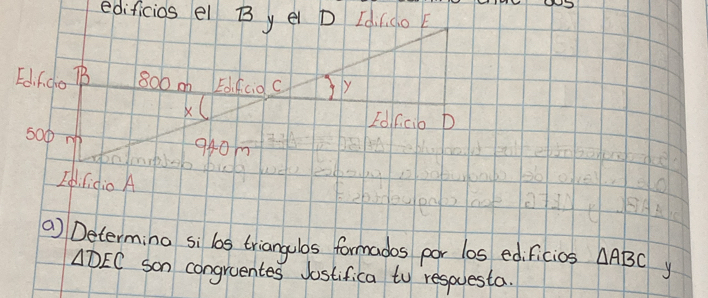 edificios el B y el D Edificio E
Edificio B 800 m Edificio C } y
x
Edificio D
500 m
940 m
Edificio A
a) Determina si los triangulos formados por los edificios ΔABC y
ΔDEC son congruentes Justifica tu respuesta.